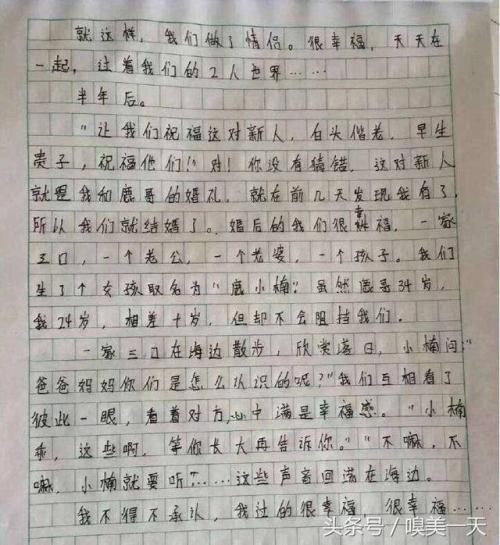 就这样，我们做了情侣。很幸福，天天在
一起，过着我们的2人世界……
半年后。
"让我们祝福这对新人，白头偕老，早生
贵子，祝福他们！"对！你没有猜错，这对新人
就是我和鹿哥的婚礼，就在前几天发现我有了，
所以我们就结婚了。婚后的我们很幸福，一家
三口，一个老公，一个老婆，一个孩子。我们
生了个女孩取名为"鹿小楠"虽然鹿哥34岁，
我24岁，相差十岁，但却不会阻挡我们。
一家三口在海边散步，欣赏落日，小楠问："
爸爸妈妈你们是怎么认识的呢？"我们互相看了
彼此一眼，看着对方，心中满是幸福感。"小楠
乖，这些啊，等你长大再告诉你。""不嘛，不
嘛，小楠就要听"……这些声音回荡在海边。
我不得不承认，我过的很幸福，很幸福……
头条号/嗅美一天